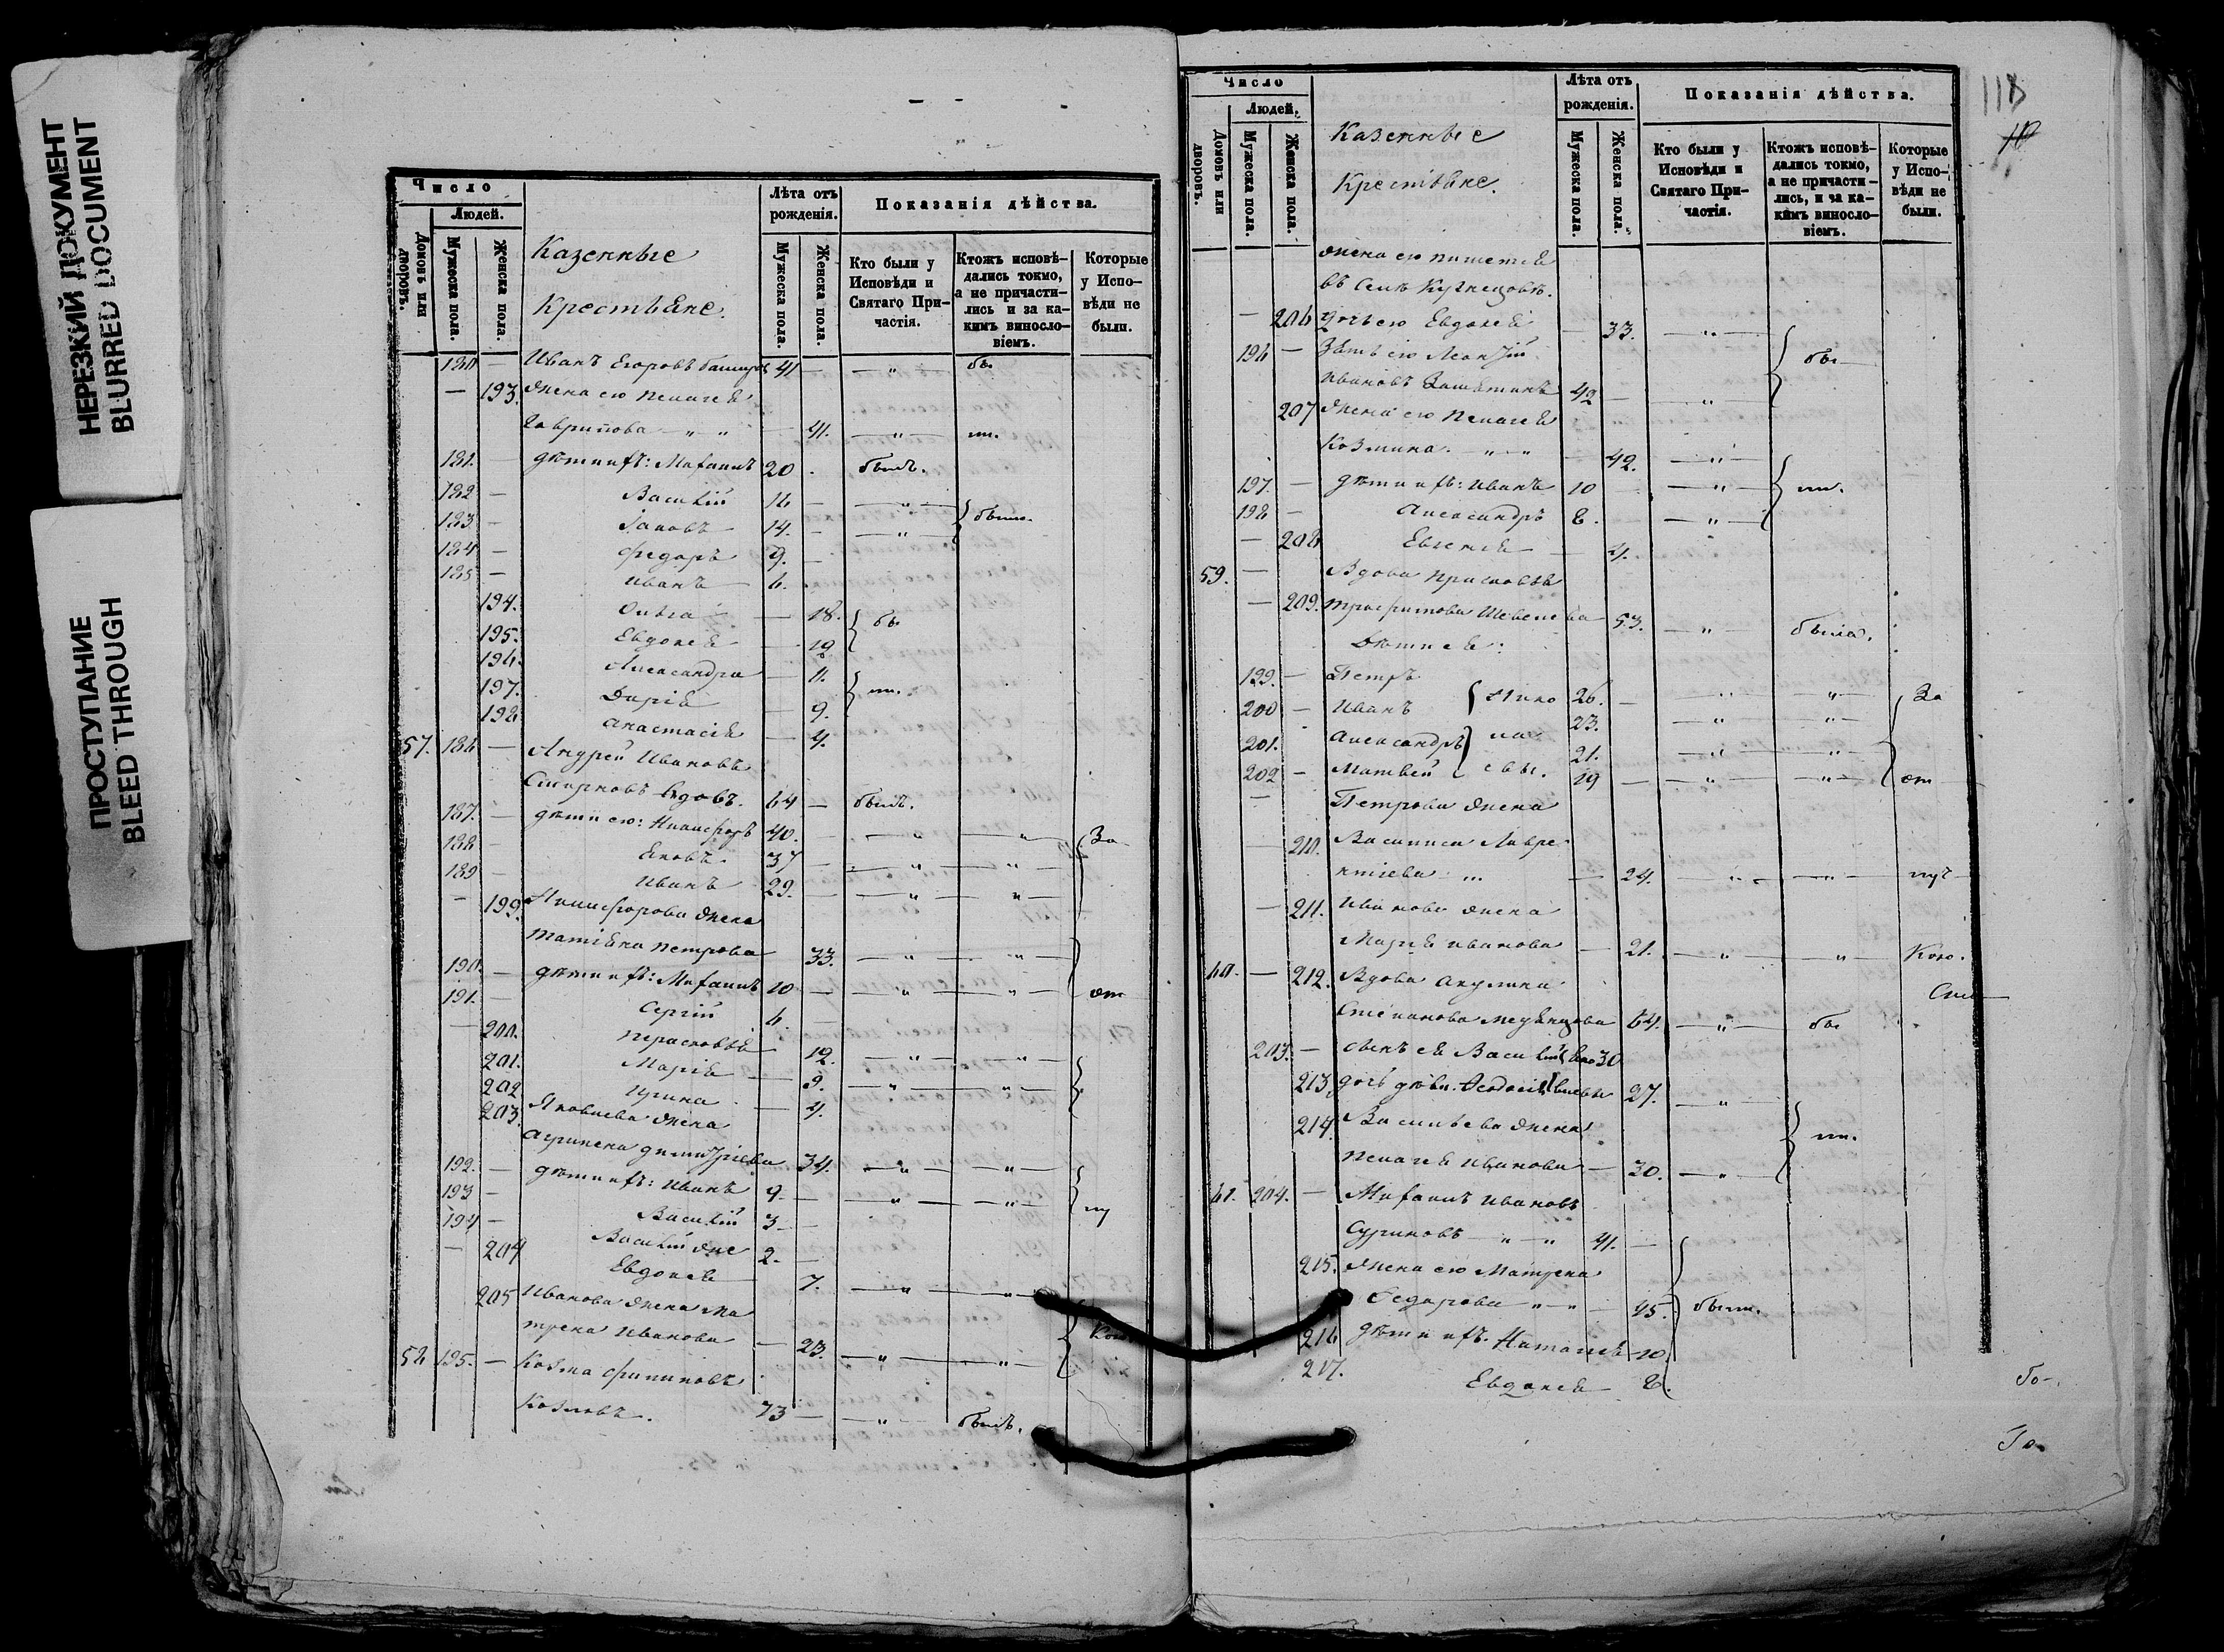 НЕРЕЗКИЙ ДОКУМЕНТ
BLURRED DOCUMENT
ПРОСТУПАНИЕ
BLEED THROUGH
Число
Людей.
Домовъ или дворовъ.
Мужеска пола.
Женска пола.
Казенные
Крестьяне.
Лѣта отъ рожденія.
Мужеска пола.
Женска пола.
Показанія дѣйства.
Кто были у Исповѣди и Святаго Причастія.
Ктожъ исповѣдались токмо, а не причастились и за какимъ винословіемъ.
Которые у Исповѣди не были.
180 — Иванъ Егоровъ 41 — — " — бы
— 193. Жена его Пелагея
Гаврилова — " " — 41. — " — ли.
181. — дѣти ихъ: Михаилъ 20 . былъ.
182 — Василій 16 — — " —
183 — Іаковъ 14. — — " — были.
184 — Федоръ 9. —
185 — Иванъ 6.
194. Ольга — 18. бы
195. Евдокея — 12
196. Александра — 11. ли.
197. Дарія — 9.
198 Анастасія — 4.
57. 186 — Андрей Ивановъ
Смирновъ вдовъ. 64 — былъ.
187. — дѣти его: Никифоръ 40. — " — " За
188 — Яковъ 37 — " — "
189 — Иванъ 29. — " — "
— 199. Никифорова жена
Татіяна Петрова — 33. — " — "
190. — дѣти ихъ: Михаилъ 10 — — " — " от
191. — Сергій 6. —
200. Прасковья — 12. — " — "
201. Марія — 9. — " — "
202 Ирина — 4.
203. Яковлева жена
Агрипена Димитріева 34. — " — "
192. — дѣти ихъ: Иванъ 9. — — " — " лу
193 — Василій 3 —
194 — Василій же 2. —
— 204 Евдокея — 7. — " — "
205 Иванова жена Ма
трена Иванова — 23. — " — "
58 195. — Козма Филиповъ
Козловъ. 73 — — " — былъ.
Число
Людей.
Домовъ или дворовъ.
Мужеска пола.
Женска пола.
Казенные
Крестьяне.
Лѣта отъ рожденія.
Мужеска пола.
Женска пола.
Показанія дѣйства.
Кто были у Исповѣди и Святаго Причастія.
Ктожъ исповѣдались токмо, а не причастились, и за какимъ винословіемъ.
Которые у Исповѣди не были.
118
жена его пишется
въ Селѣ Кузнецовѣ.
— 206 дочь его Евдокея — 33. — " —
196 — Зять его Леонтій бы
Ивановъ 42 — — " —
207 Жена его Пелагея
Козмина — " — " — 42. — " —
197. — дѣти ихъ: Иванъ 10 — " — ли.
198 — Александръ 8. — " —
— 208 Евгенія — 4.
59. — Вдова Прасковья
— 209. Трифилова 53. — " — была.
Дѣти ея:
199. — Петръ 26. — " "
200 — Иванъ Нико 23. " " За
201. Александръ ла 21. " "
202 — Матвей евы. 19 — " " от
— Петрова жена
— 210. Василиса Лавре
нтіева " — 24. — " — луч
— 211. Иванова жена
Марія Иванова — 21. — " — " Кою.
60. — 212. Вдова Акулина
Степанова 64. — " — бы
203. — сынъ ея Василій 30
213. дочь дѣвица Ѳеодосія 27. — " —
214. Васильева жена ли.
Пелагея Иванова — 30. — " —
61. 204. — Михаилъ Ивановъ
Суриковъ — " — " 41. —
215. Жена его Матрена
Федорова — " — " — 45. были.
216 дѣти ихъ. Наталія — 10.
217. Евдокея — 8.